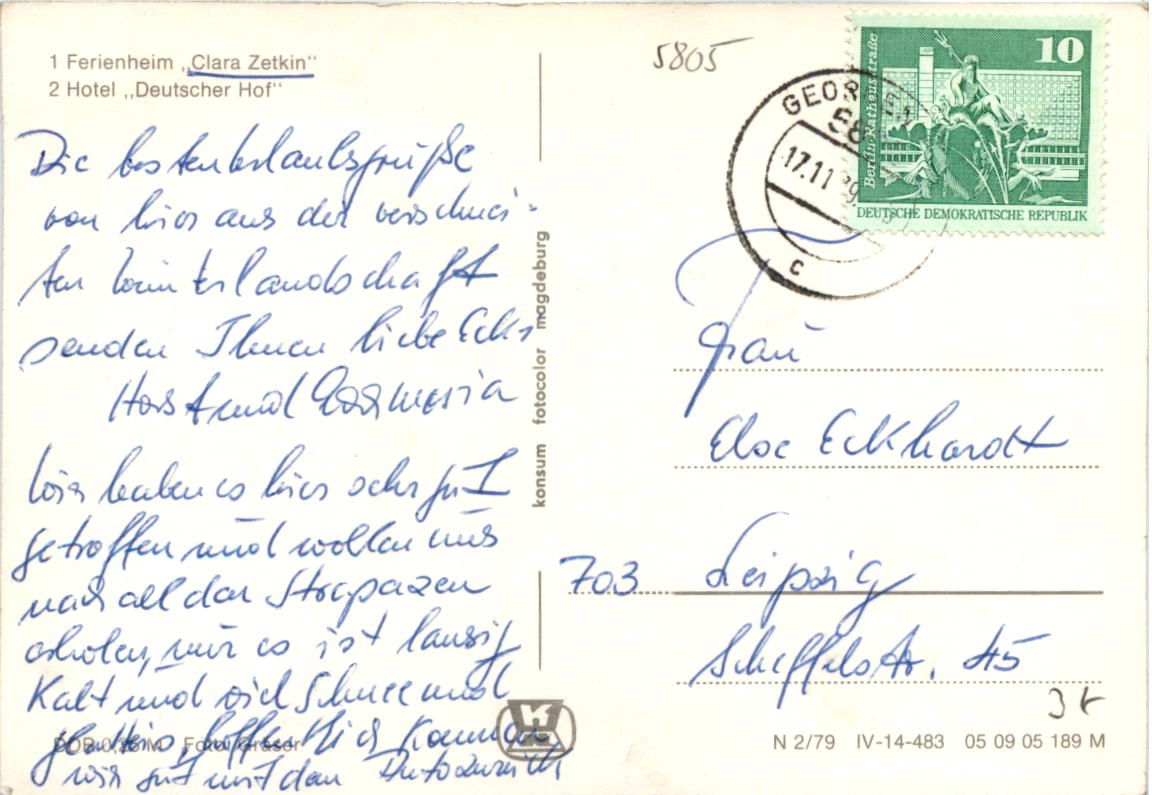 1 Ferienheim „Clara Zetkin"
2 Hotel „Deutscher Hof"
Die besten Urlaubsgrüße
von hier aus der verschnei-
ten Winterlandschaft
senden Ihnen liebe Eck's
Horst und Rosmaria
Wir haben es hier sehr gut
getroffen und wollen uns
nach all den Strapazen
erholen, nur es ist lausig
Kalt und viel Schnee und
hoffentlich kommen
wir gut mit dem Auto zurück
DDR 0,25 M Foto: Gräser
konsum fotocolor magdeburg
K
5805
10
Berlin-Rathausstraße
DEUTSCHE DEMOKRATISCHE REPUBLIK
58
17.11
c
Frau
Else Eckhardt
703 Leipzig
Scheffelstr. 45
N 2/79 IV-14-483 05 09 05 189 M